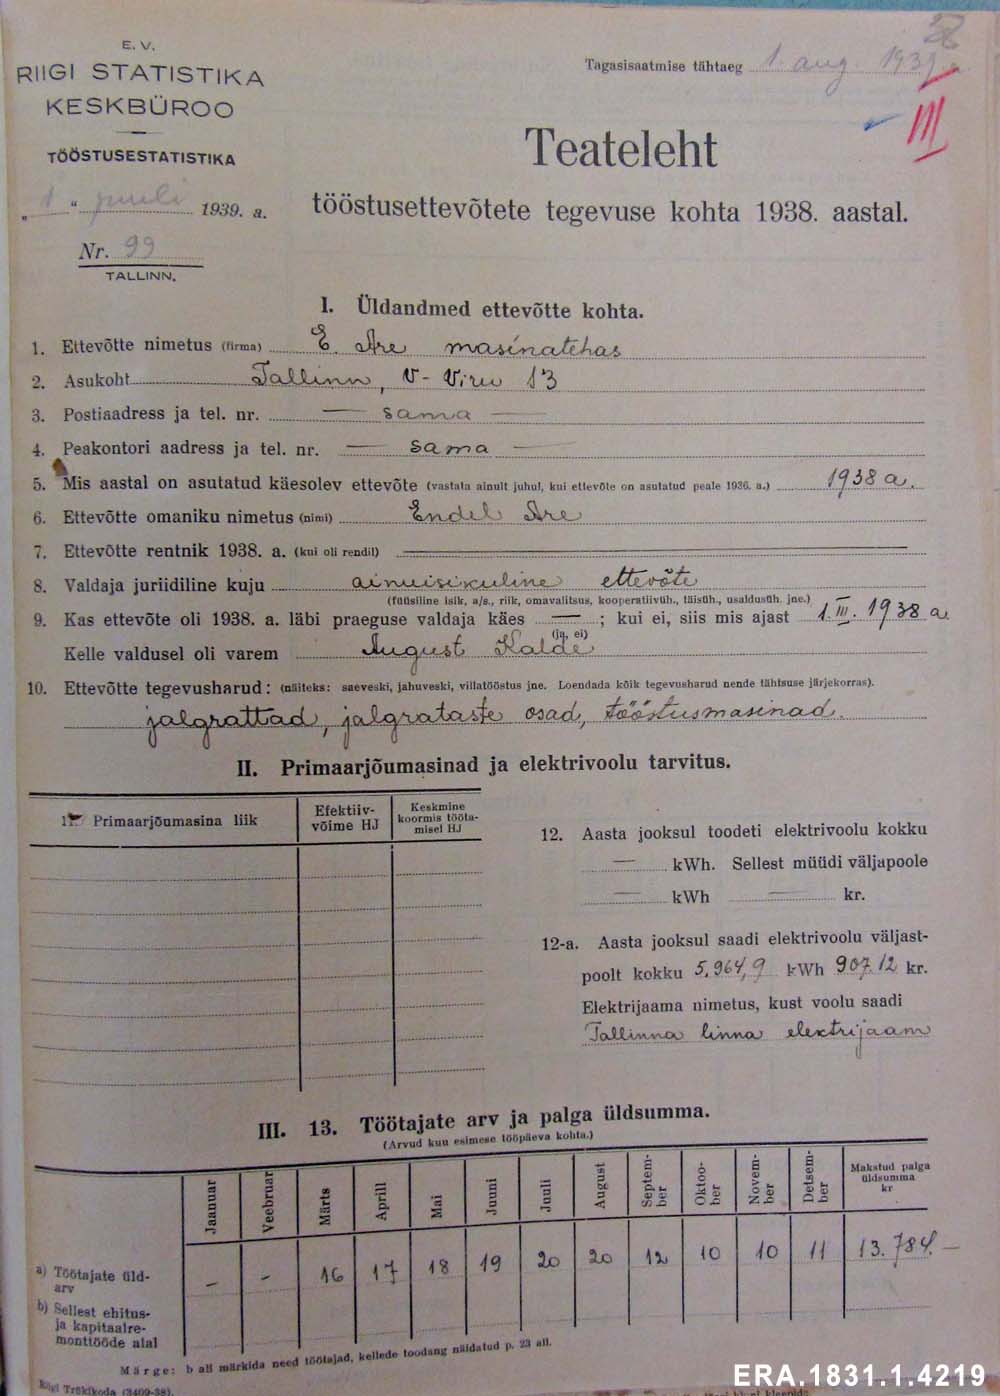 E. V.
RIIGI STATISTIKA
KESKBÜROO
TÖÖSTUSESTATISTIKA
„ 1 “ juuli 1939. a.
Nr. 99
TALLINN.
Tagasisaatmise tähtaeg 1. aug. 1939.
III
Teateleht
tööstusettevõtete tegevuse kohta 1938. aastal.
I. Üldandmed ettevõtte kohta.
1. Ettevõtte nimetus (firma) E. Are masinatehas
2. Asukoht Tallinn, V-Viru 13
3. Postiaadress ja tel. nr. — sama —
4. Peakontori aadress ja tel. nr. — sama —
5. Mis aastal on asutatud käesolev ettevõte (vastata ainult juhul, kui ettevõte on asutatud peale 1936. a.) 1938 a.
6. Ettevõtte omaniku nimetus (nimi) Endel Are
7. Ettevõtte rentnik 1938. a. (kui oli rendil) —
8. Valdaja juriidiline kuju ainuisikuline ettevõte
(füüsiline isik, a/s., riik, omavalitsus, kooperatiivüh., täisüh., usaldusüh. jne.)
9. Kas ettevõte oli 1938. a. läbi praeguse valdaja käes — ; kui ei, siis mis ajast 1. III. 1938 a.
(ja, ei)
Kelle valdusel oli varem August Kalde
10. Ettevõtte tegevusharud: (näiteks: saeveski, jahuveski, villatööstus jne. Loendada kõik tegevusharud nende tähtsuse järjekorras).
jalgrattad, jalgrataste osad, tööstusmasinad.
II. Primaarjõumasinad ja elektrivoolu tarvitus.
11. Primaarjõumasina liik
Efektiiv-
võime HJ
Keskmine
koormis tööta-
misel HJ
12. Aasta jooksul toodeti elektrivoolu kokku
— kWh. Sellest müüdi väljapoole
— kWh — kr.
12-a. Aasta jooksul saadi elektrivoolu väljast-
poolt kokku 5.964,9 kWh 907.12 kr.
Elektrijaama nimetus, kust voolu saadi
Tallinna linna elektrijaam
III. 13. Töötajate arv ja palga üldsumma.
(Arvud kuu esimese tööpäeva kohta.)
Jaanuar Veebruar Märts Aprill Mai Juuni Juuli August Septem-
ber Oktoo-
ber Novem-
ber Detsem-
ber Makstud palga
üldsumma
kr
a) Töötajate üld-
arv – – 16 17 18 19 20 20 12 10 10 11 13.784.—
b) Sellest ehitus-
ja kapitaalre-
monttööde alal
Märge: b all märkida need töötajad, kellede toodang näidatud p. 23 all.
Riigi Trükikoda (3409-38).
ERA.1831.1.4219